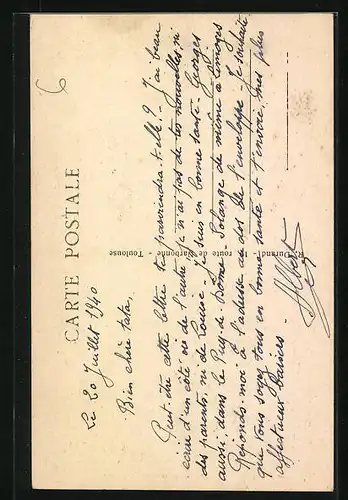 CARTE POSTALE
6
Le 20 Juillet 1940
Bien chère tata,
Peut-être cette lettre te parviendra t-elle ? J'ai beau
écrire d'un côté ou de l'autre je n'ai pas de tes nouvelles, ni
des parents, ni de Louise. Je suis en bonne santé. Georges
aussi, dans le Puy-de-Dôme. Solange de même à Limoges
Réponds moi à l'adresse au dos de l'enveloppe. Je souhaite
que vous soyez tous en bonne santé et t'envoie mes plus
affectueux baisers.
R. Durand, route de Narbonne - Toulouse